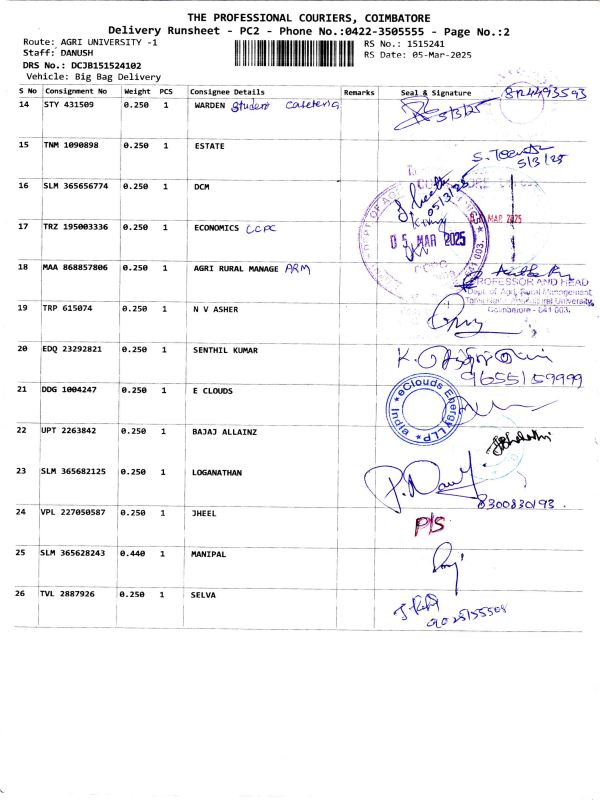 THE PROFESSIONAL COURIERS, COIMBATORE
Delivery Runsheet - PC2 - Phone No.:0422-3505555 - Page No.:2
Route: AGRI UNIVERSITY -1
RS No.: 1515241
Staff: DANUSH
RS Date: 05-Mar-2025
DRS No.: DCJB151524102
Vehicle: Big Bag Delivery
S No Consignment No Weight PCS Consignee Details Remarks Seal & Signature
14 STY 431509 0.250 1 WARDEN Student Cafeteria
5/3/25
15 TNM 1090898 0.250 1 ESTATE
5/3/25
16 SLM 365656774 0.250 1 DCM
05/3/25
17 TRZ 195003336 0.250 1 ECONOMICS LCPC
MAR 2025
05 MAR 2025
641 003.
18 MAA 868857806 0.250 1 AGRI RURAL MANAGE ARM
PROFESSOR AND HEAD
Dept. of Agri. Rural Management
Tamil Nadu Agricultural University,
Coimbatore - 641 003.
19 TRP 615074 0.250 1 N V ASHER
20 EDQ 23292821 0.250 1 SENTHIL KUMAR
9655159999
21 DDG 1004247 0.250 1 E CLOUDS
eClouds Energy LLP
India
22 UPT 2263842 0.250 1 BAJAJ ALLAINZ
23 SLM 365682125 0.250 1 LOGANATHAN
8300830193
24 VPL 227050587 0.250 1 JHEEL
P/S
25 SLM 365628243 0.440 1 MANIPAL
26 TVL 2887926 0.250 1 SELVA